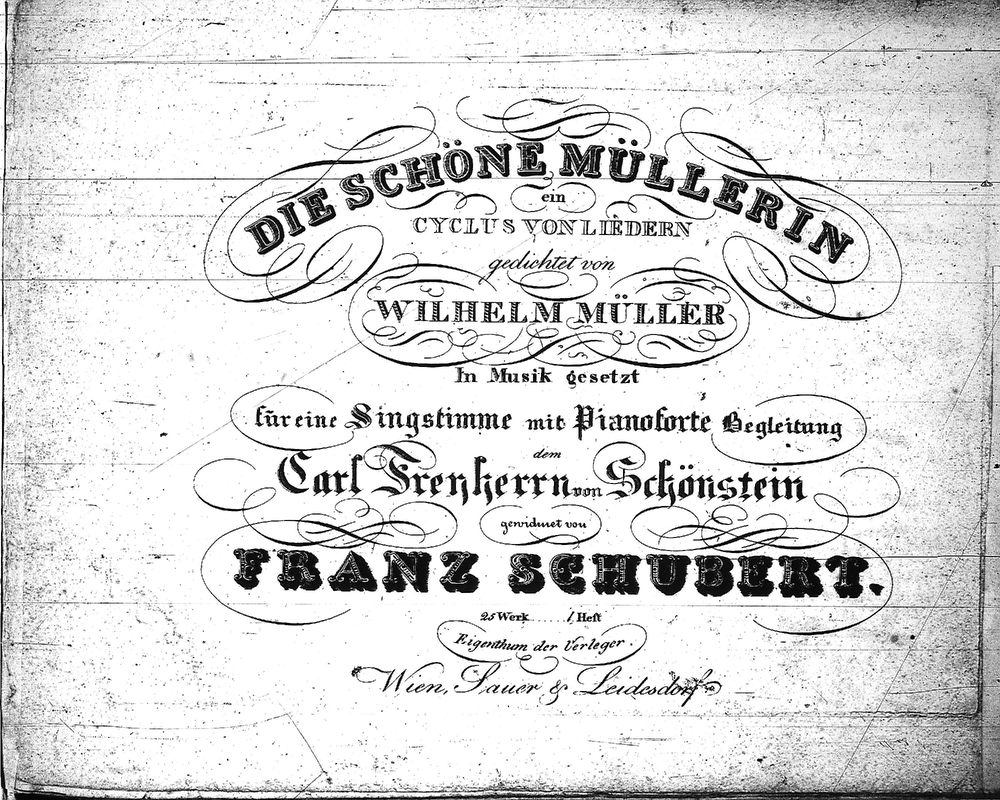 DIE SCHÖNE MÜLLERIN
ein
CYCLUS VON LIEDERN
gedichtet von
WILHELM MÜLLER
In Musik gesetzt
für eine Singstimme mit Pianoforte Begleitung
dem
Carl Freyherrn von Schönstein
gewidmet von
FRANZ SCHUBERT.
25 Werk ..... 1 Heft
Eigenthum der Verleger.
Wien, Sauer & Leidesdorf